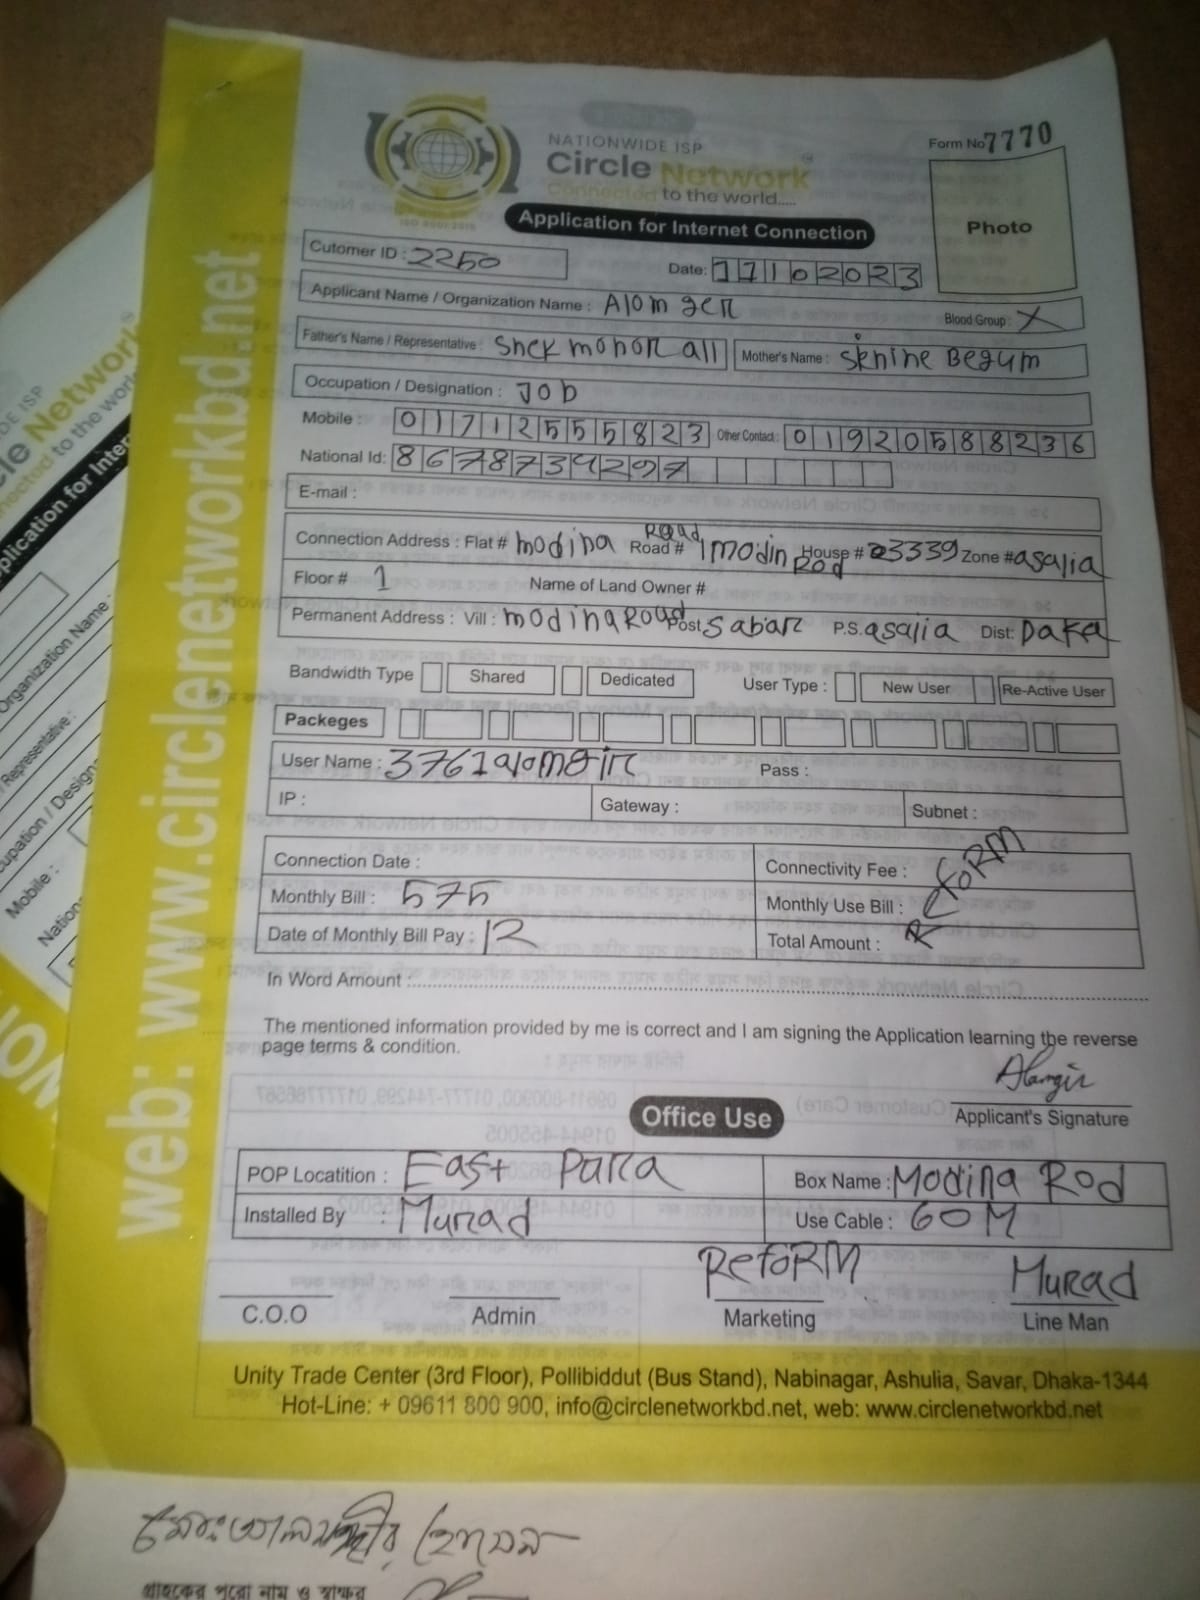 NATIONWIDE ISP
Circle Network
Connected to the world.....
ISO 9001:2015
Form No 7770
Photo
Application for Internet Connection
Cutomer ID : 2250
Date: 11102023
Applicant Name / Organization Name : Alomger
Blood Group : X
Father's Name / Representative : Snek monor all
Mother's Name : Sknine Begum
Occupation / Designation : Job
Mobile : 01712555823
Other Contact : 01920588236
National Id: 8678734297
E-mail :
Connection Address : Flat # modina Road # Road 1 modin Rod House # 23339 Zone # asalia
Floor # 1 Name of Land Owner #
Permanent Address : Vill : modina Road Post: Sabar P.S. asalia Dist: Daka
Bandwidth Type Shared Dedicated User Type : New User Re-Active User
Packeges
User Name : 3761alomgir Pass :
IP : Gateway : Subnet :
Connection Date : Connectivity Fee :
Monthly Bill : 575 Monthly Use Bill : reform
Date of Monthly Bill Pay : 12 Total Amount :
In Word Amount :
The mentioned information provided by me is correct and I am signing the Application learning the reverse
page terms & condition.
Alamgir
Applicant's Signature
Office Use
POP Locatition : East Para Box Name : Modina Rod
Installed By : Murad Use Cable : 60M
Reform Murad
C.O.O Admin Marketing Line Man
Unity Trade Center (3rd Floor), Pollibiddut (Bus Stand), Nabinagar, Ashulia, Savar, Dhaka-1344
Hot-Line: + 09611 800 900, info@circlenetworkbd.net, web: www.circlenetworkbd.net
web: www.circlenetworkbd.net
মোঃ আলমগীর হোসেন
গ্রাহকের পুরো নাম ও স্বাক্ষর